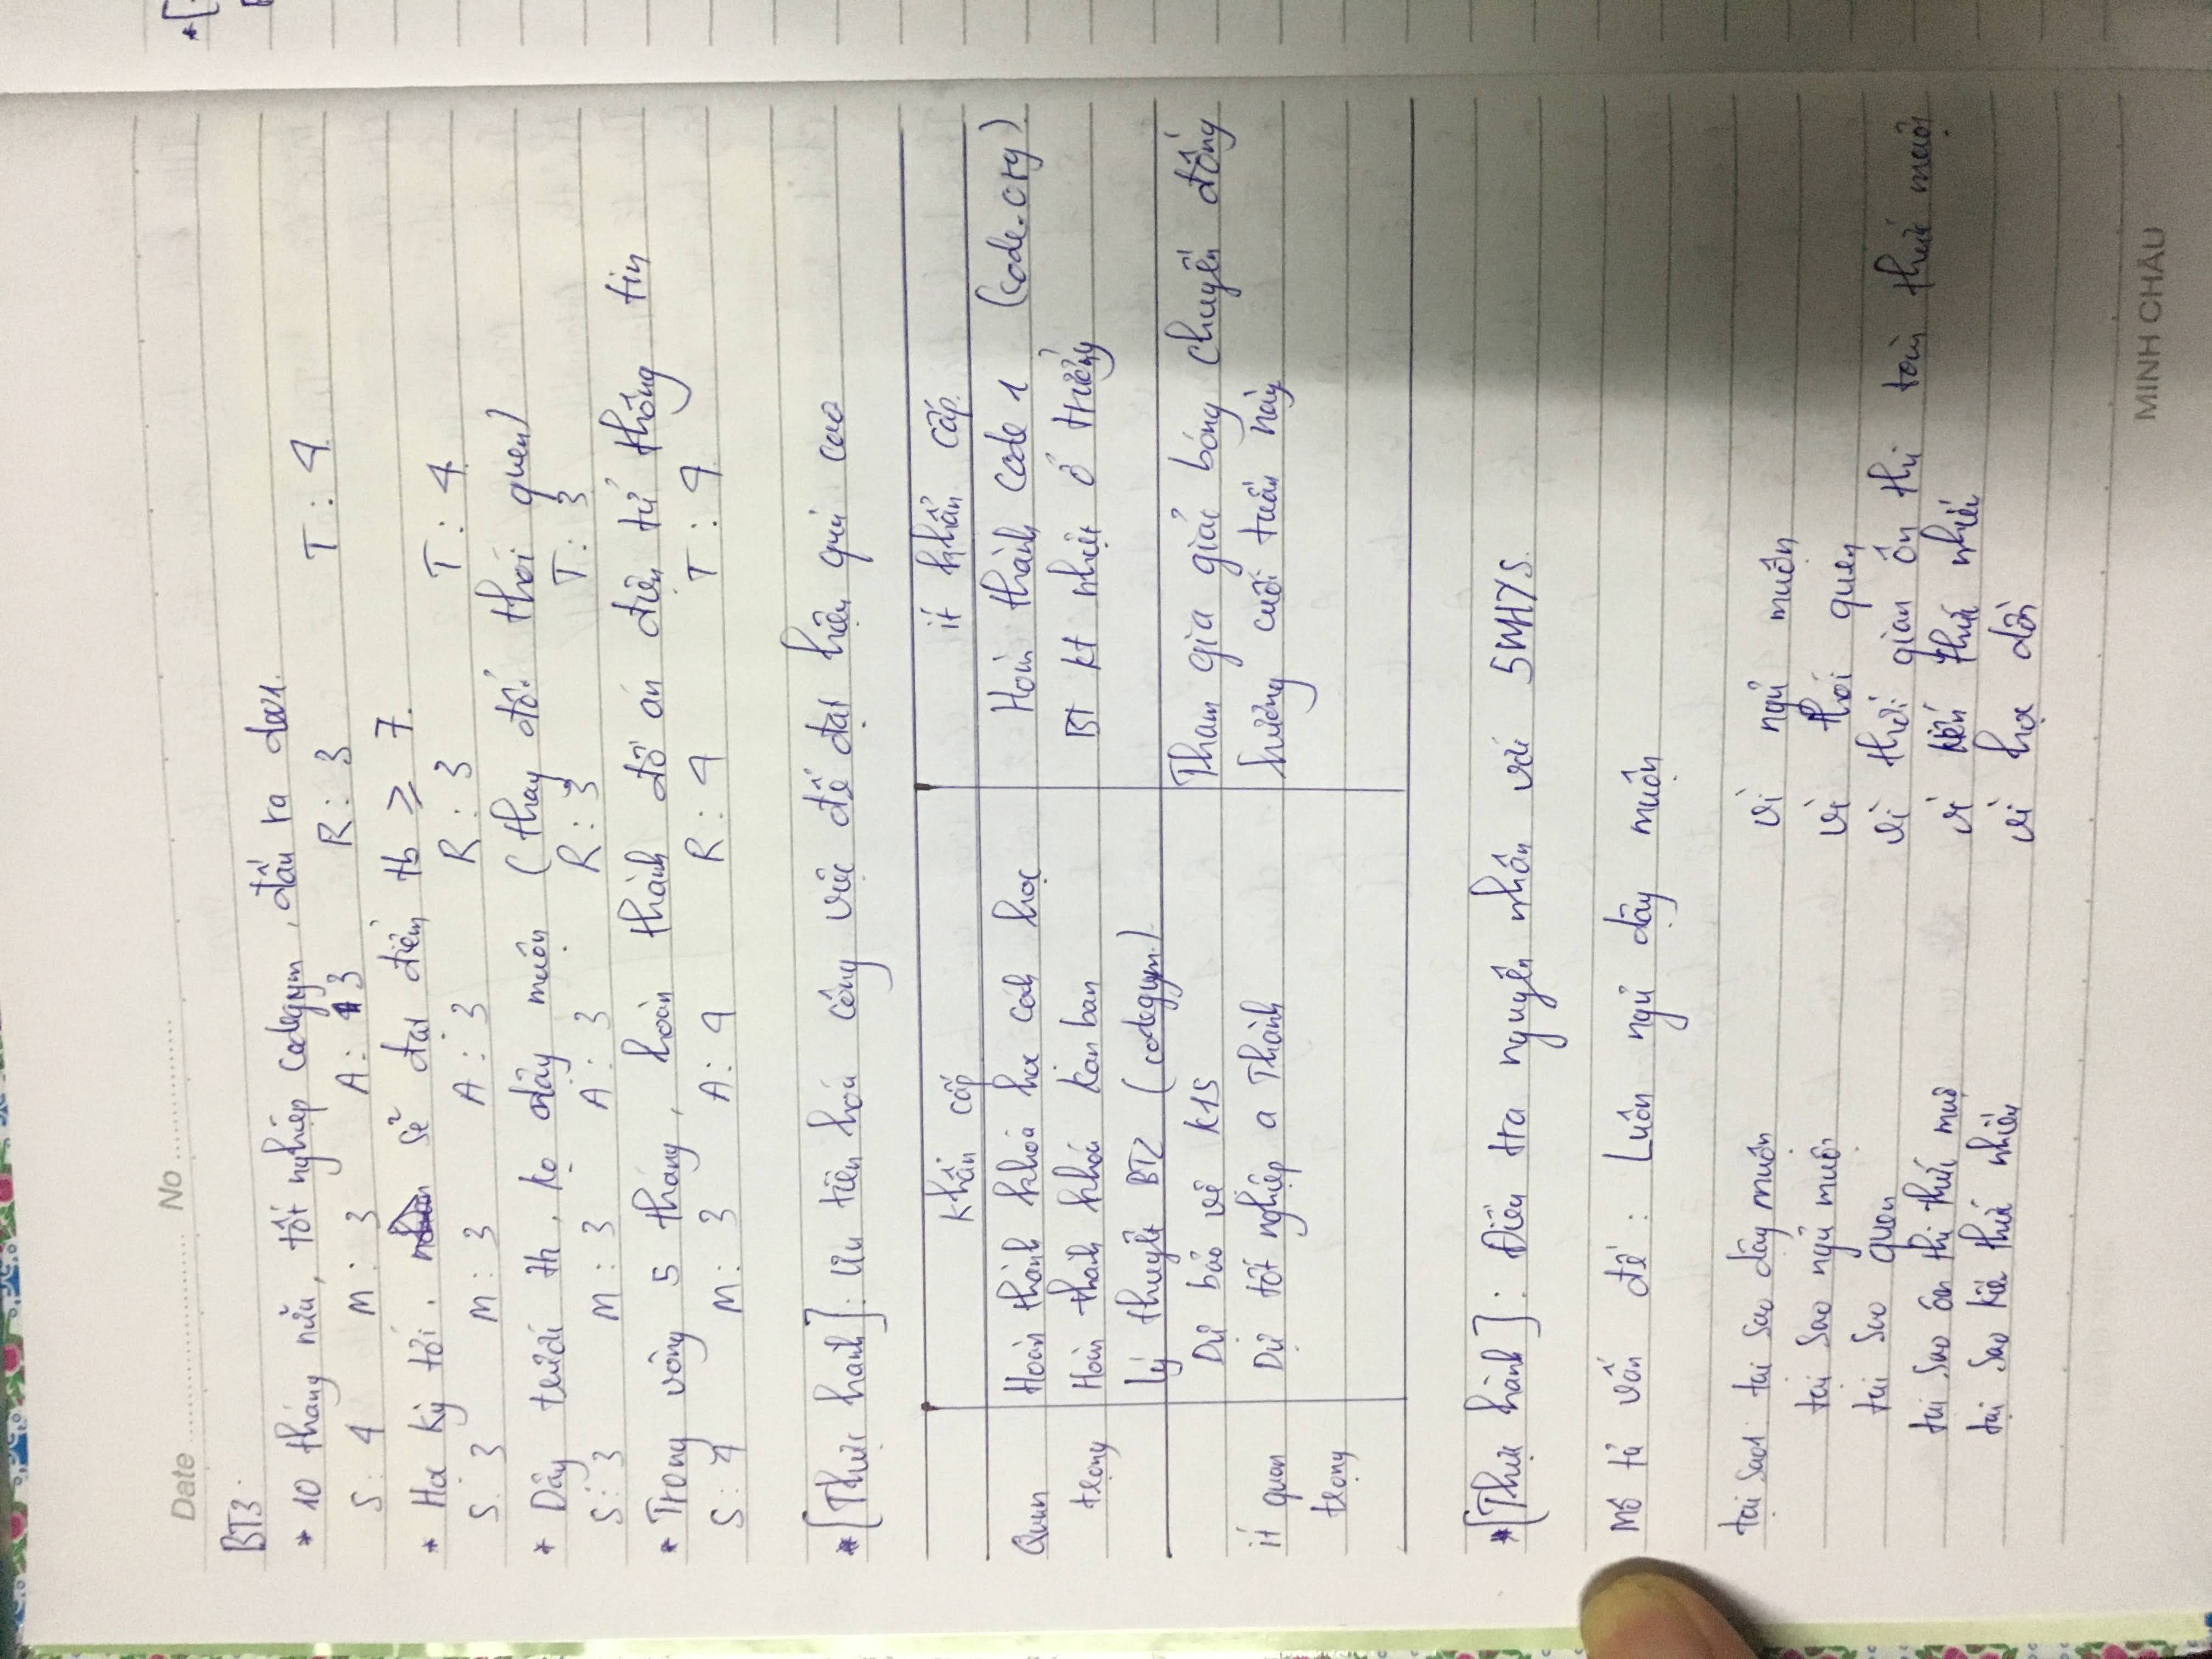 Date ........................ No ................
BT3
* 10 tháng nữa, tốt nghiệp codegym, đầu ra
S: 4 M: 3 A: 3 R: 3 T: 4
* Học kỳ tới, sẽ đạt điểm tb ≥ 7.
S: 3 M: 3 A: 3 R: 3 T: 4
* Dậy trước 7h, ko dậy muộn (thay đổi thói quen)
S: 3 M: 3 A: 3 R: 3 T: 3
* Trong vòng 5 tháng, hoàn thành đồ án điện tử thông tin
S: 4 M: 3 A: 4 R: 4 T: 4
* [Thực hành]: Ưu tiên hoá công việc để đạt hiệu quả cao
Khẩn cấp ít khẩn cấp.
Quan trọng
Hoàn thành khoá học cách học
Hoàn thành khoá Kanban
Lý thuyết BT2 (codegym)
Hoàn thành code 1 (code.org)
BT kt nhiệt ở trường
ít quan trọng
Dự bảo vệ K15
Dự tốt nghiệp a Thành
Tham gia giải bóng chuyền đồng
hương cuối tuần này
* [Thực hành]: Điều tra nguyên nhân với 5WHYS.
Mô tả vấn đề: Luôn ngủ dậy muộn
tại sao1: tại sao dậy muộn vì ngủ muộn
tại sao ngủ muộn vì thói quen
tại sao quen vì thời gian ôn thi toàn thức muộn
tại sao ôn thi thức muộn vì kiến thức nhiều
tại sao kiến thức nhiều vì học dồn
MINH CHÂU